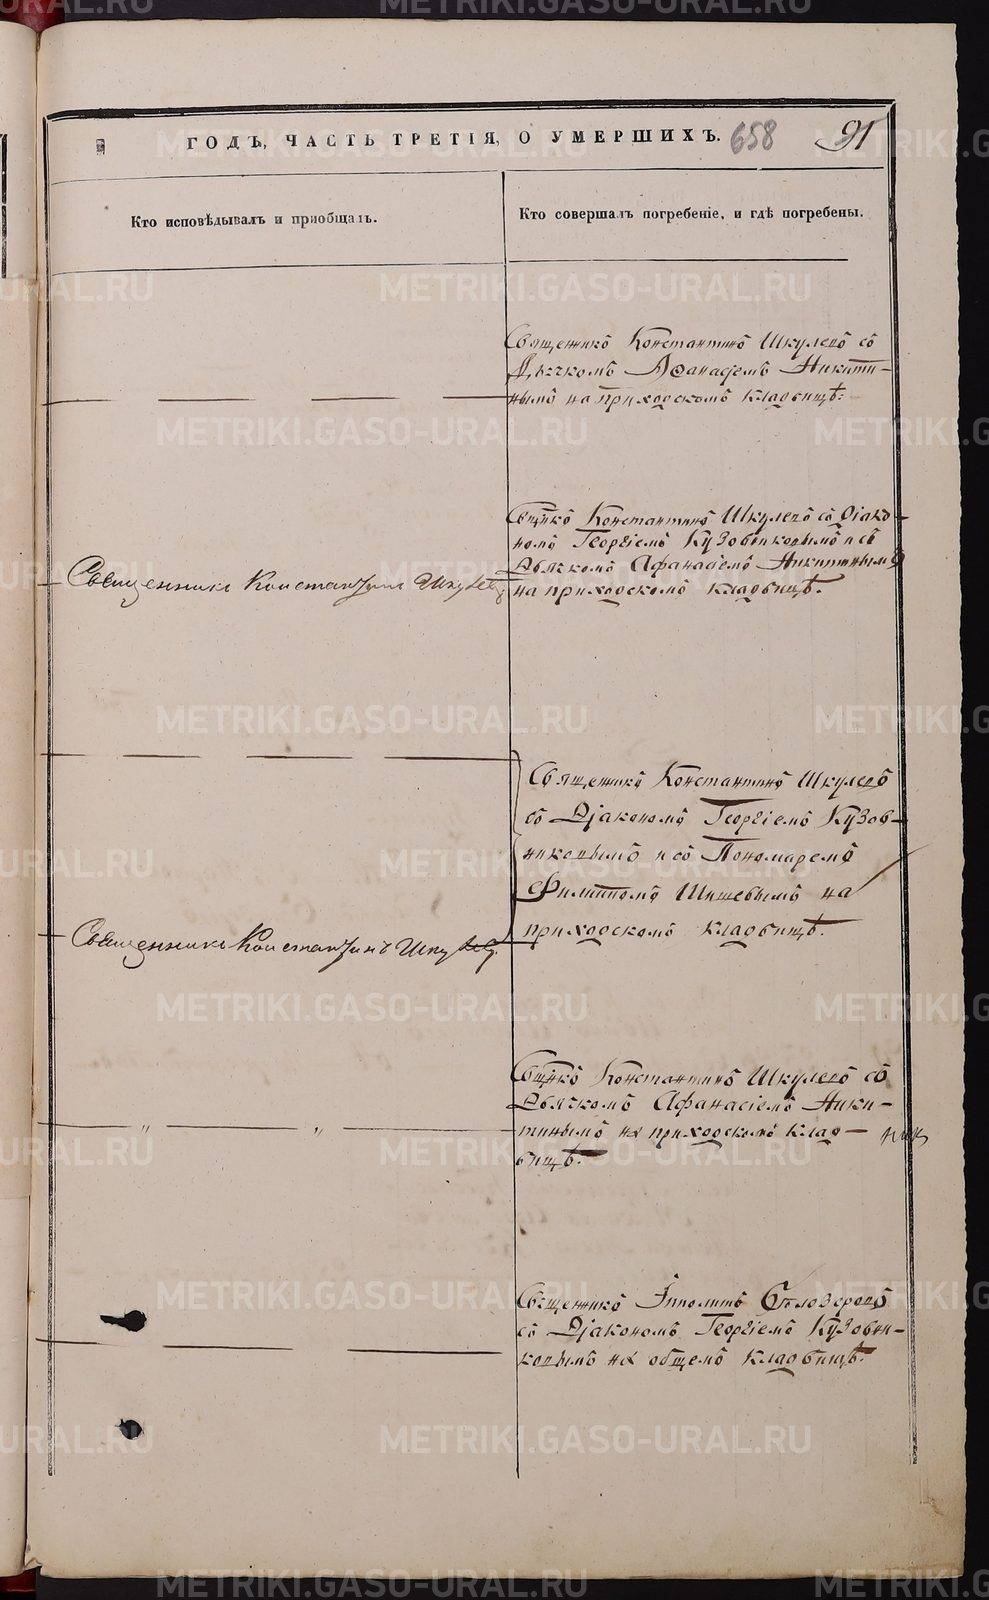 ГОДЪ, ЧАСТЬ ТРЕТІЯ, О УМЕРШИХЪ. 658 91
Кто исповѣдывалъ и пріобщалъ.
Кто совершалъ погребеніе, и гдѣ погребены.
Священникъ Константинъ Шкулевъ съ
Дьячкомъ Аѳанасіемъ Никити-
нымъ на приходскомъ кладбищѣ.
Свщнкъ Константинъ Шкулевъ съ Діако-
номъ Георгіемъ Кузовниковымъ и съ
Дьячкомъ Афанасіемъ Никитинымъ
на приходскомъ кладбищѣ.
Священникъ Константинъ Шкулевъ
Священникъ Константинъ Шкулевъ
съ Діакономъ Георгіемъ Кузов-
никовымъ и съ Пономаремъ
Филиппомъ Шишевымъ на
приходскомъ кладбищѣ.
Священникъ Константинъ Шкулевъ.
Свщнкъ Константинъ Шкулевъ съ
Дьячкомъ Афанасіемъ Ники-
тинымъ на приходскомъ клад-
бищѣ.
Священникъ Іпполитъ Бѣлозеровъ
съ Діакономъ Георгіемъ Кузовни-
ковымъ на общемъ кладбищѣ.
METRIKI.GASO-URAL.RU